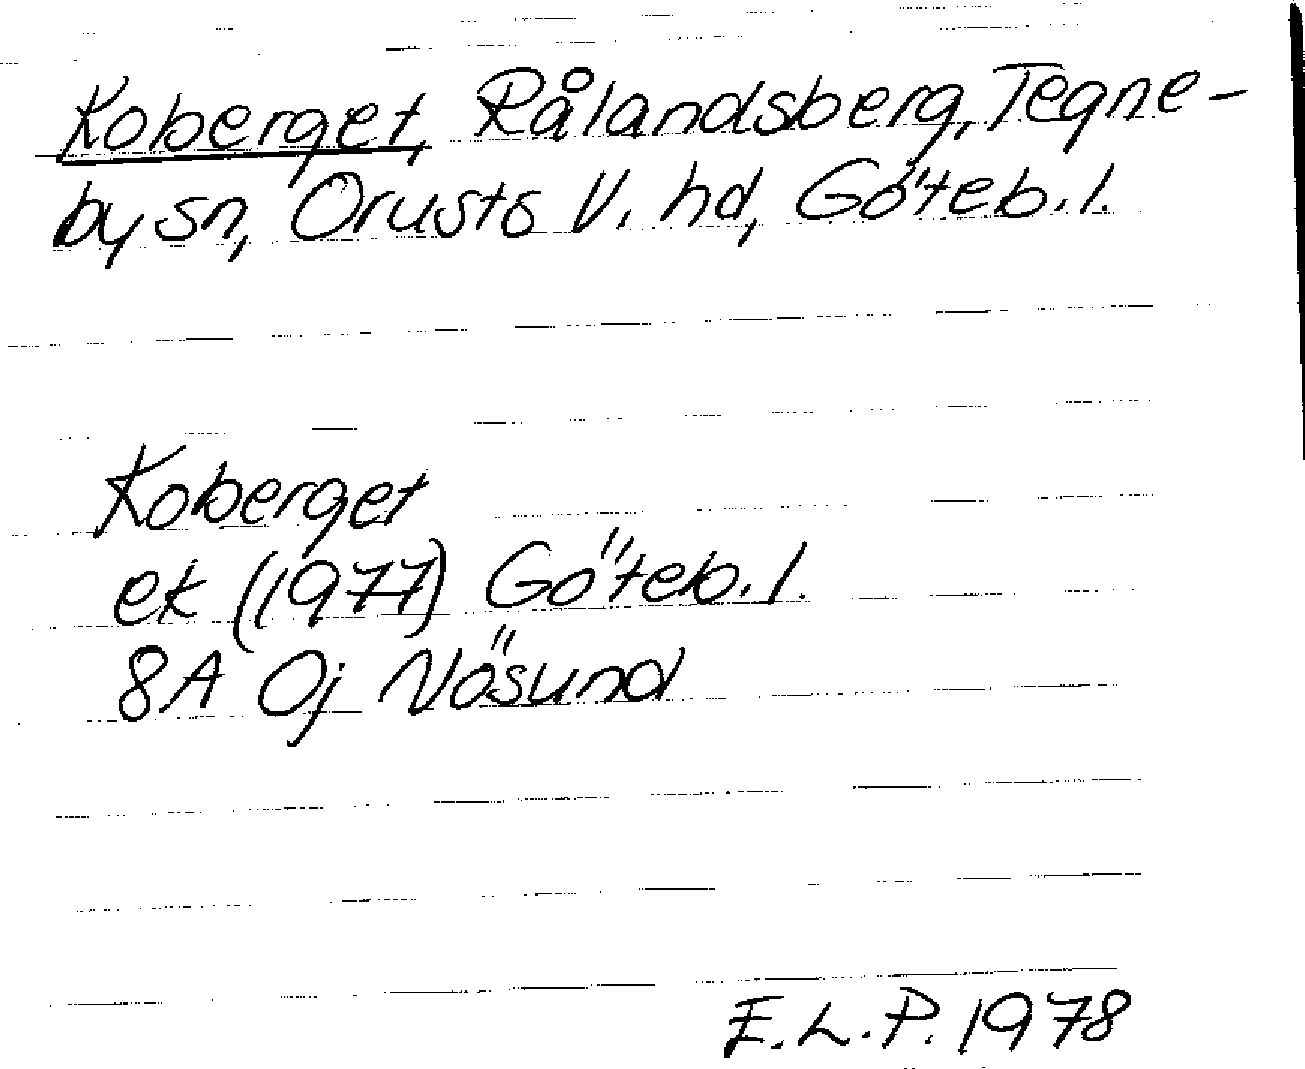 Koberget, Rålandsberg, Tegne-
by sn, Orusts V. hd, Göteb. l.
Koberget
ek (1977) Göteb. l.
8A Oj Nösund
E.L.P. 1978